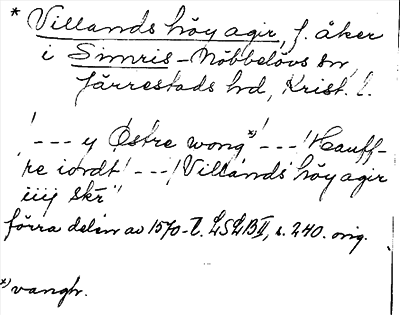 * Villands höy agir, f. åker
i Simris-Nöbbelövs sn,
Järrestads hd, Krist. l.
"--- y Östre wong *) --- "Hauff-
re iordt" --- "Villands höy agir
iiij skr"
förra delen av 1570-t. LSLB II, s. 240. orig.
*) vangh.